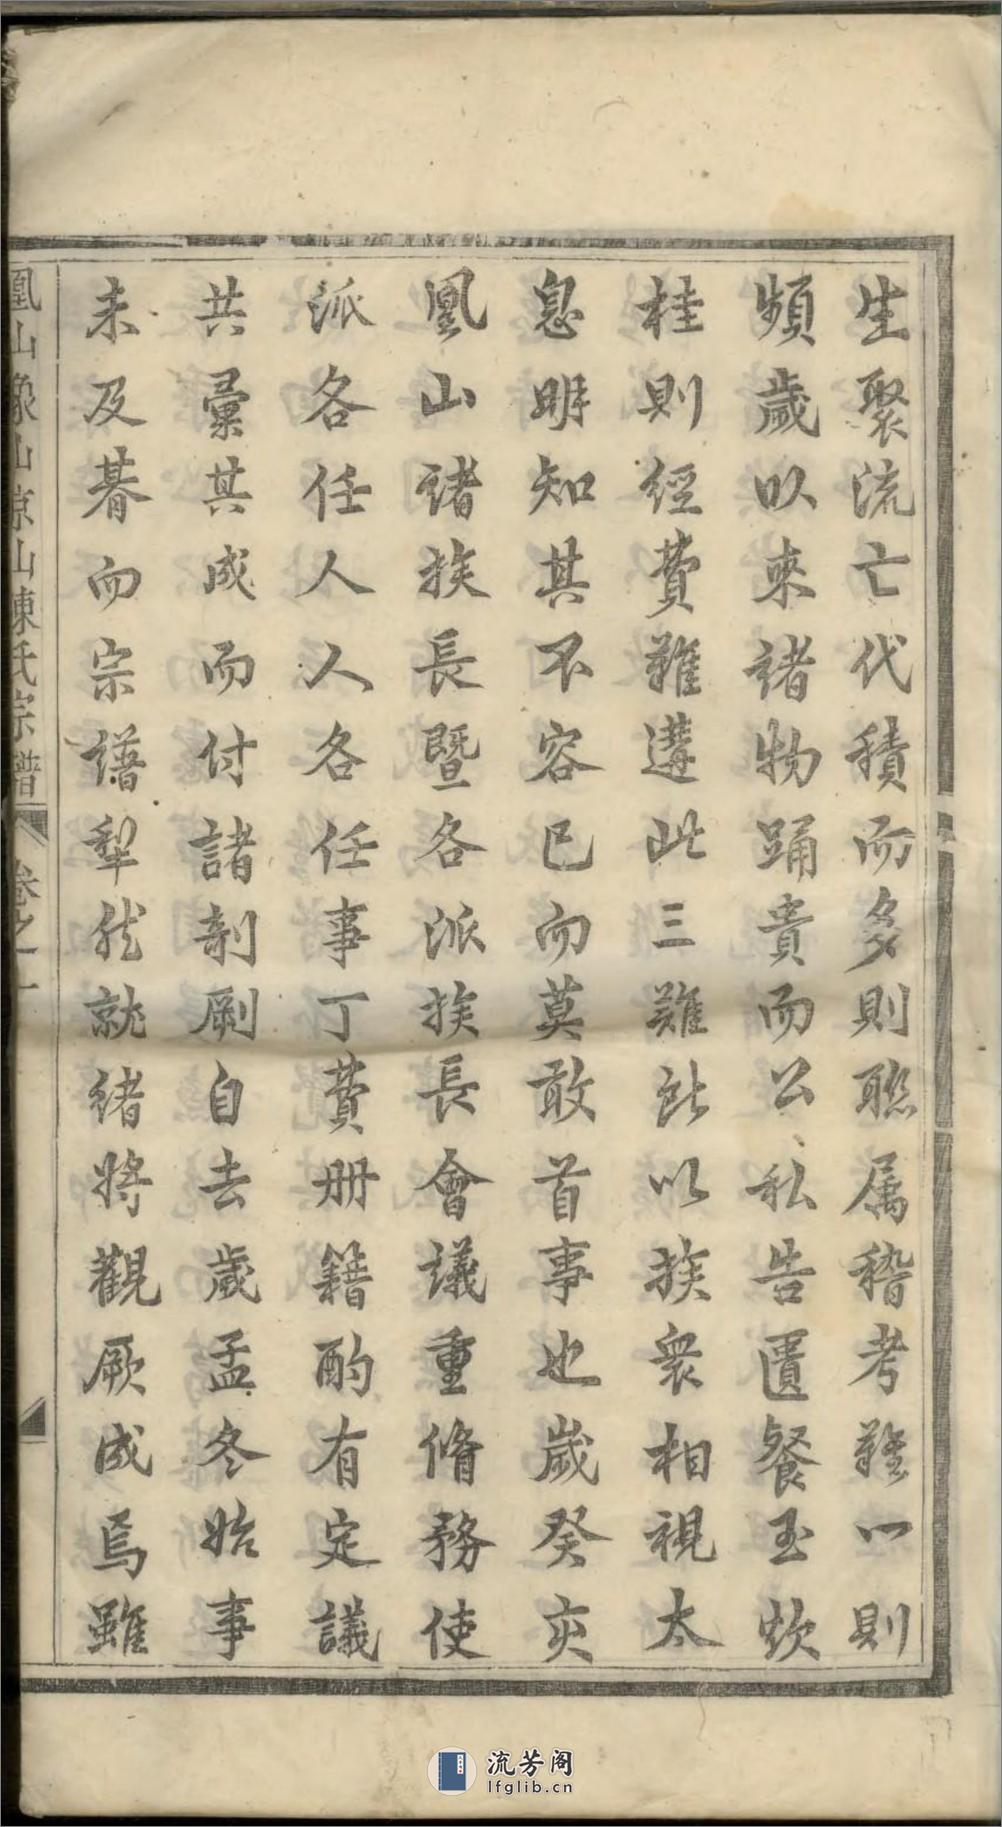 生聚流亡代積而多則聯属稽考難一則
頻歲以來諸物踊貴而公私告匱餐玉炊
桂則經費難遘此三難所以族衆相視太
息明知其不容已而莫敢首事也歲癸亥
凰山諸族長暨各派族長會議重脩務使
派各任人人各任事丁費册籍酌有定議
共彙其成而付諸剞劂自去歲孟冬始事
未及朞而宗譜犁然就緒將觀厥成焉雖
凰山象山凉山陳氏宗譜 卷之一
流芳阁
lfglib.cn